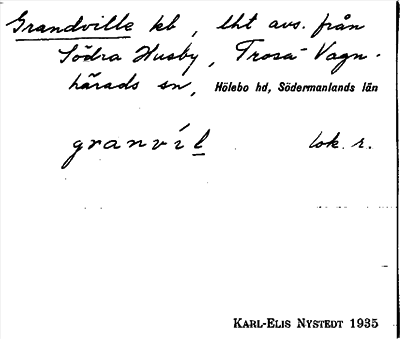 Grandville kb, lht avs. från
Södra Husby, Trosa-Vagn-
härads sn, Hölebo hd, Södermanlands län
granví l lok. r.
KARL-ELIS NYSTEDT 1935